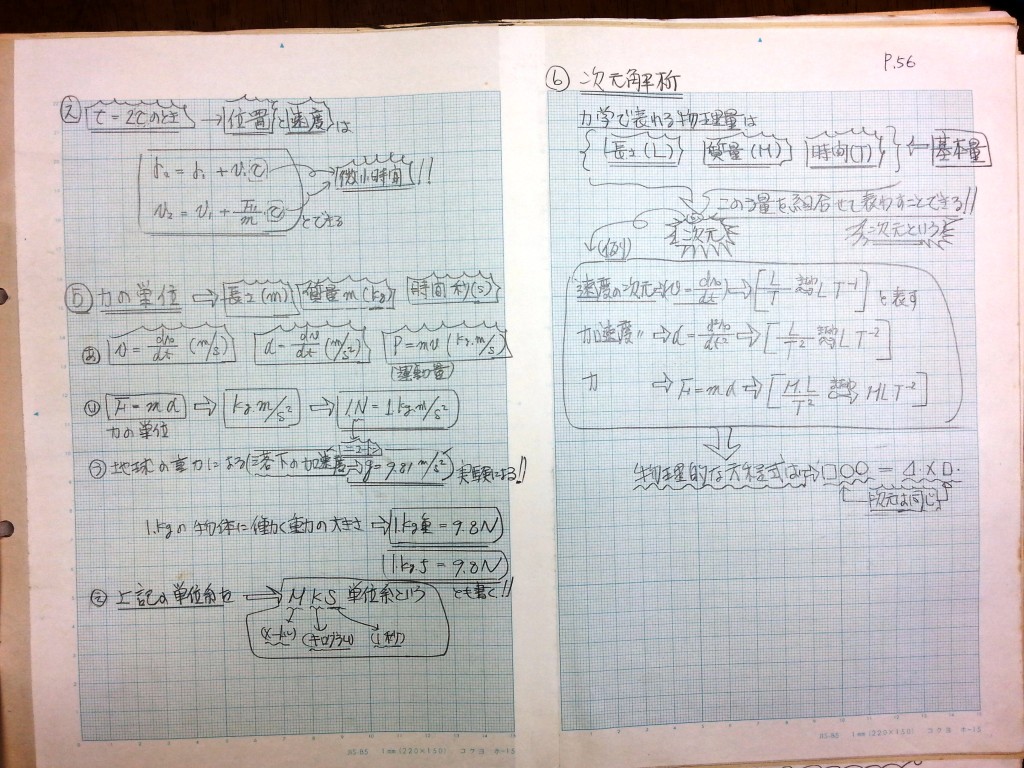 え t = 2τのとき → 位置 と 速度 は
r₂ = r₁ + v₁τ
微小時間!!
v₂ = v₁ + F₁/m τ とできる
⑤ 力の単位 ⇒ 長さ(m) 質量 m(kg) 時間 秒(s)
あ v = dr/dt (m/s) α = dv/dt (m/s²) P = mv (kg.m/s)
(運動量)
い F = mα ⇒ kg.m/s² ⇒ 1N = 1kg.m/s²
力の単位
ニュートン
う 地球の重力による(落下の加速度 → g = 9.81 m/s²) 実験による!!
1.kgの物体に働く重力の大きさ ⇒ 1kg重 = 9.8N
1kg.f = 9.8N
え 上記の単位系を ⇒ MKS 単位系という とも書く!!
(メートル) (キログラム) (1秒)
P.56
⑥ 次元解析
力学で表れる物理量は
{ 長さ(L) 質量(M) 時間(T) } ⇐ 基本量
この3量を組合せて表わすことできる!!
次元 次元という
(例)
速度の次元は(v) = dr/dt ⇒ [L/T または LT⁻¹] と表す
加速度 〃 → α = d²r/dt² ⇒ [L/T² または LT⁻²]
力 → F = mα ⇒ [ML/T² または MLT⁻²]
物理的な方程式は ⇒ □○○ = △×□.
次元は同じ
JIS-B5 1mm(220×150) コクヨ ホ-15
JIS-B5 1mm(220×150) コクヨ ホ-15